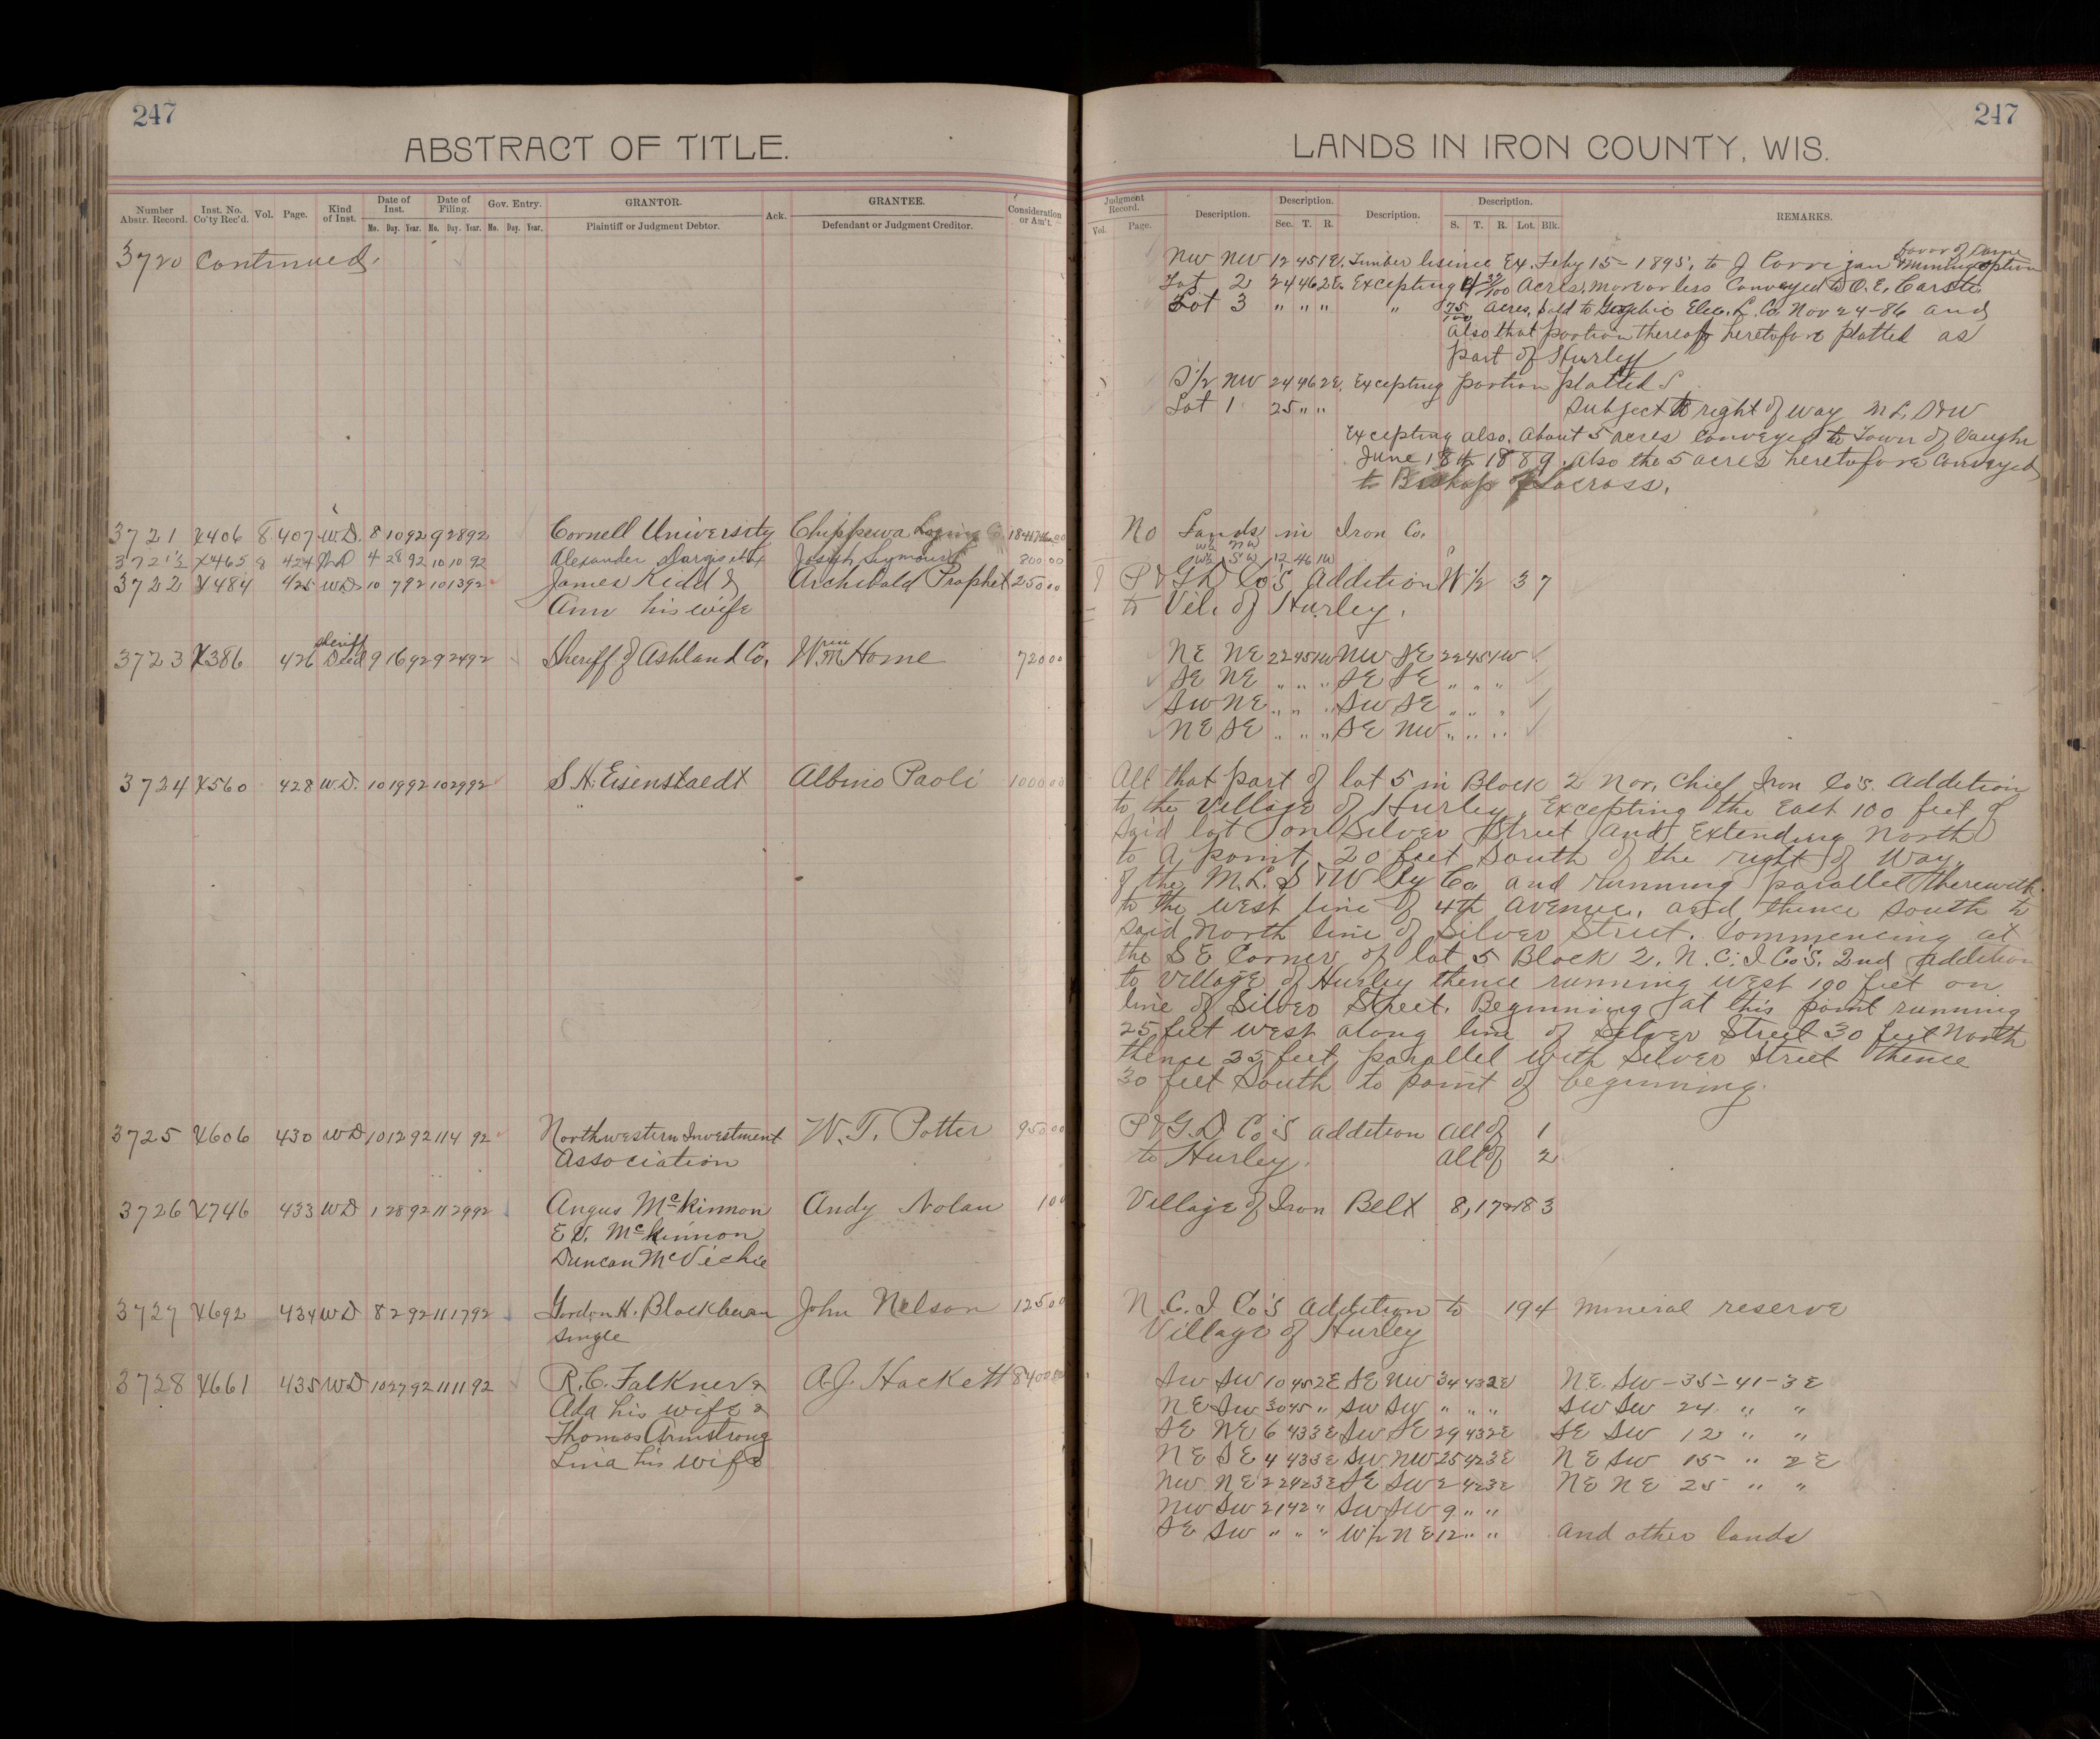 247
ABSTRACT OF TITLE.
Number Abstr. Record. Inst. No. Co'ty Rec'd. Vol. Page. Kind of Inst. Date of Inst. Date of Filing. Gov. Entry. GRANTOR. Ack. GRANTEE. Consideration or Am't.
Mo. Day. Year. Mo. Day. Year. Mo. Day. Year. Plaintiff or Judgment Debtor. Defendant or Judgment Creditor.
3720 Continued.
3721 X406 8 407 W.D. 8 10 92 9 28 92 Cornell University Chippewa
3721½ X465 8 424 4 28 92 10 10 92 Alexander Joseph 800.00
3722 X484 425 WD 10 7 92 10 13 92 James Kidd & Archibald Prophet 250.00
Ann his wife
Sheriff
3723 X386 426 Deed 9 16 92 9 24 92 Sheriff of Ashland Co. Wm Home 720 00
3724 X560 428 W.D. 10 19 92 10 29 92 S.H. Eisenstaedt Albino Paoli 1000 00
3725 X606 430 WD 10 12 92 11 4 92 Northwestern Investment W.T. Potter 950 00
Association
3726 X746 433 WD 1 28 92 11 29 92 Angus McKinnon Andy Nolan 1 00
E D. McKinnon
Duncan McVichie
3727 X692 434 WD 8 2 92 11 17 92 Gordon H. Blackburn John Nelson 125 00
single
3728 X661 435 WD 10 27 92 11 11 92 R.C. Falkner & A.J. Hackett 8400
Ada his wife &
Thomas Armstrong
Lina his wife
247
LANDS IN IRON COUNTY, WIS.
Judgment Record. Description. Description. Description. Description. REMARKS.
Vol. Page. Sec. T. R. S. T. R. Lot. Blk.
favor of same
NW NW 12 45 1E. Timber lisence Ex. Feby 15 - 1895, to J Corrigan Mining option
Lot 2 24 46 2E. Excepting Acres, more or less Conveyed to O.E. Carste
Lot 3 " " " " 75/100 Acres, sold to Elec. L. Co. Nov 24-86 and
Also that portion thereof heretofore platted as
part of Hurley
S 1/2 NW 24 46 2E. Excepting portion platted
Lot 1 25 " " Subject to right of way M L S & W
Excepting also. About 5 acres conveyed to Town of Vaughn
June 18th 1889. Also the 5 acres heretofore conveyed
to Bishop of Lacross.
No Lands in Iron Co.
W½ NW
W½ SW 12 46 1W
P & G D Co's Addition W 1/2 3 7
to Vil. of Hurley.
NE NE 22 45 1W NW SE 22 45 1W
SE NE " " " SE SE " " "
SW NE " " " SW SE " " "
NE SE " " " SE NW " " "
All that part of lot 5 in Block 2 Nor. Chief Iron Co's. Addition
to the Village of Hurley, Excepting the East 100 feet of
said lot on Silver Street and Extending North
to a point 20 feet South of the right of Way
of the M.L.S & W Ry Co and running parallel therewith
to the West line of 4th Avenue, and thence South to
said North line of Silver Street. Commencing at
the SE Corner of lot 5 Block 2. N.C.I Co's. 2nd Addition
to Village of Hurley thence running West 100 feet on
line of Silver Street. Beginning at this point running
25 feet west along line of Silver Street 30 feet North
thence 25 feet parallel with Silver Street thence
30 feet South to point of beginning.
P & G.D. Co's Addition All of 1
to Hurley. All of 2
Village of Iron Belt 8, 17 & 18 3
N.C.I Co's Addition to 19 4 Mineral reserve
Village of Hurley
SW SW 10 45 2E SE NW 34 43 2E NE SW - 35 - 41 - 3E
NE SW 30 45 " SW SW " " " SW SW 24 " "
SE NE 6 43 3E SW SE 29 43 2E SE SW 12 " "
NE SE 4 43 3E SW NW 25 42 3E NE SW 15 " 2E
NW NE 22 42 3E SE SW 2 42 3E NE NE 25 " "
NW SW 21 42 " SW SW 9 " "
SE SW " " " W½ NE 12 " " And other lands